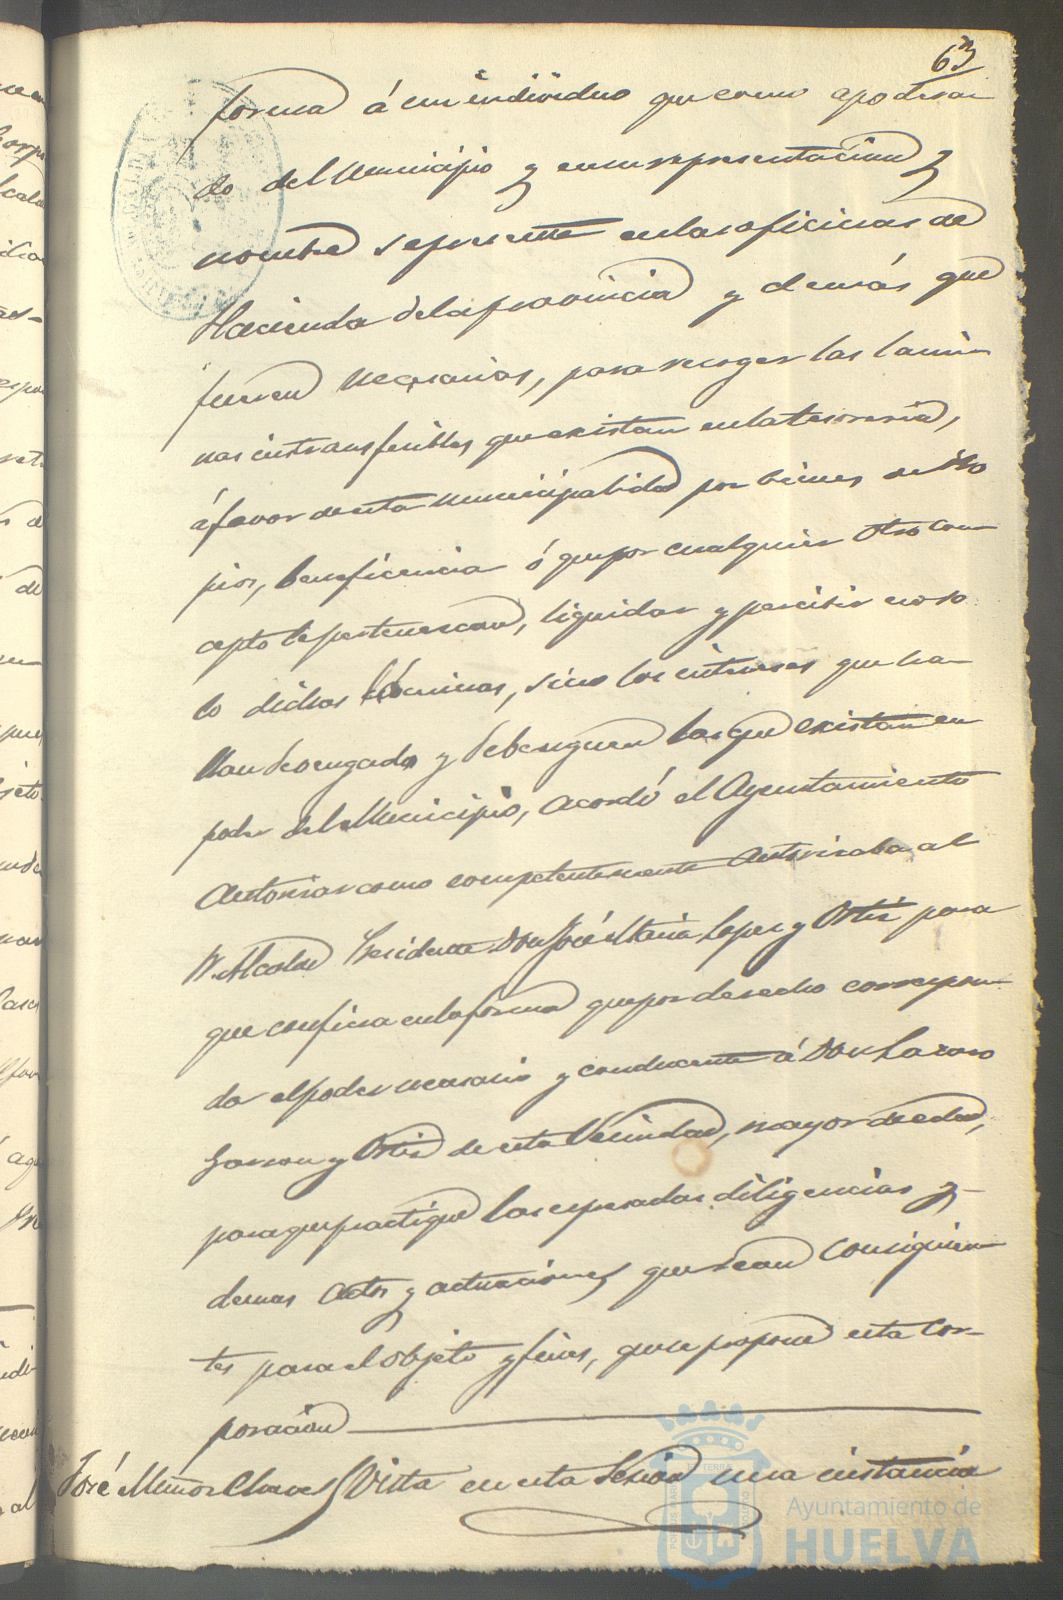 63
forma á un individuo que como apodera-
do del Municipio y en su representacion y
nombre se presente en las oficinas de
Hacienda de la provincia y demás que
fueren necesarias, para recoger las lámi-
nas intransferibles que existan en la tesoreria,
á favor de esta Municipalidad por bienes de Pro
pios, beneficencia ó que por cualquier otro con-
cepto le pertenezcan, liquidar y percibir no so
lo dichas láminas, sino los intereses que ha-
llan devengado y debenguen las que existan en
poder del Municipio, acordó el Ayuntamiento
autorizar como competentemente autorizaba al
Sr. Alcalde Presidente Don José Maria Lopez y Ortiz para
que confiera en la forma que por derecho correspon-
da el poder necesario y conducente á Don Lazaro
Garzon y Ortiz de esta Vecindad, mayor de edad,
para que practique las espresadas diligencias y
demas actos y actuaciones que sean consiguien-
tes para el objeto y fines, que se propone esta Cor-
poracion
José Muñoz Chaves Vista en esta Sesion una instancia
Ayuntamiento de
HUELVA